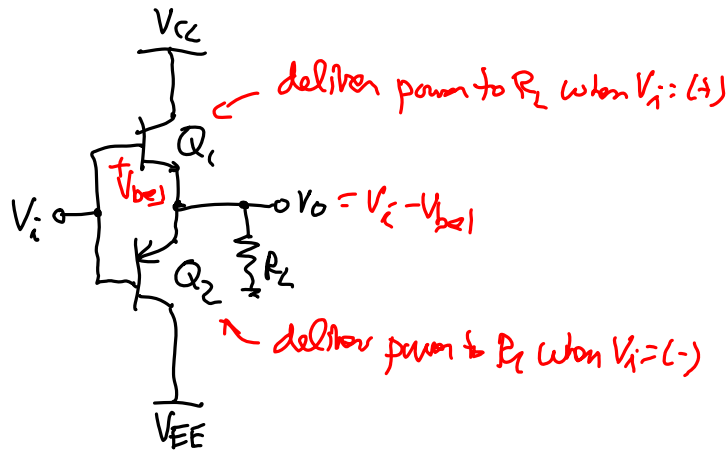 Vcc
deliver power to RL when Vi = (+)
Q1
+
Vbe1
Vi
Vo = Vi - Vbe1
RL
Q2
deliver power to RL when Vi = (-)
VEE